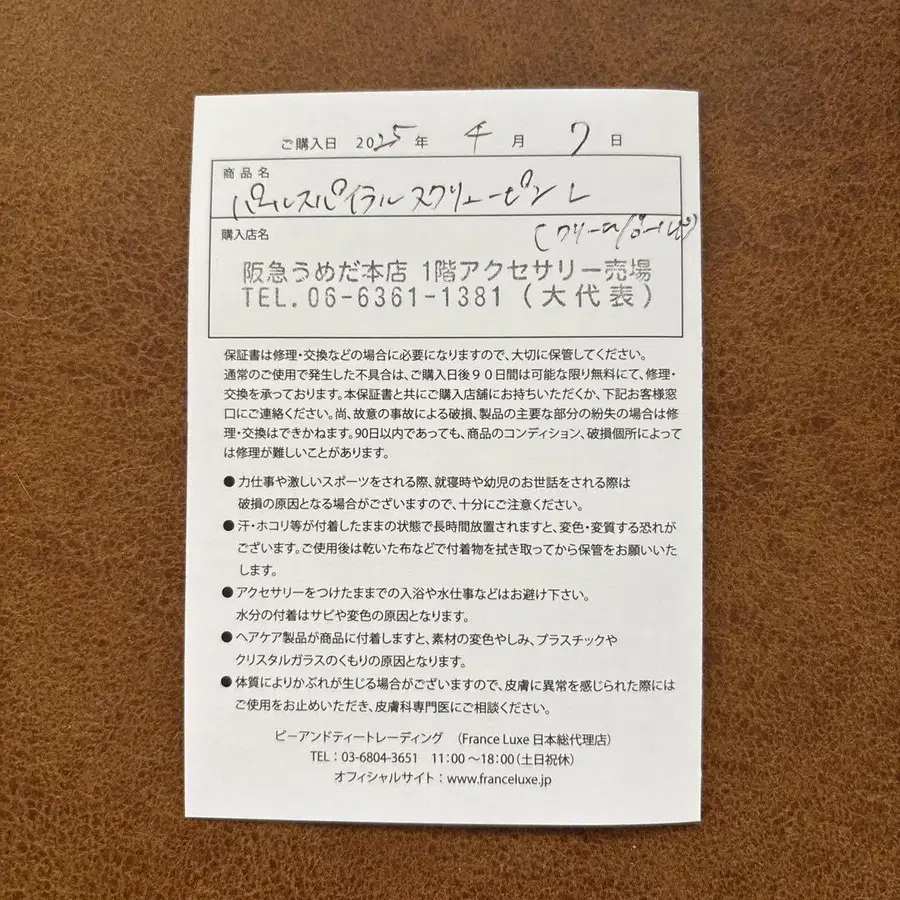 ご購入日 2025年 4月 7日
商品名
パールスパイラルスクリューピン L
購入店名
阪急うめだ本店 1階アクセサリー売場
TEL.06-6361-1381(大代表)
保証書は修理・交換などの場合に必要になりますので、大切に保管してください。
通常のご使用で発生した不具合は、ご購入日後90日間は可能な限り無料にて、修理・
交換を承っております。本保証書と共にご購入店舗にお持ちいただくか、下記お客様窓
口にご連絡ください。尚、故意の事故による破損、製品の主要な部分の紛失の場合は修
理・交換はできかねます。90日以内であっても、商品のコンディション、破損個所によって
は修理が難しいことがあります。
●力仕事や激しいスポーツをされる際、就寝時や幼児のお世話をされる際は
破損の原因となる場合がございますので、十分にご注意ください。
●汗・ホコリ等が付着したままの状態で長時間放置されますと、変色・変質する恐れが
ございます。ご使用後は乾いた布などで付着物を拭き取ってから保管をお願いいた
します。
●アクセサリーをつけたままでの入浴や水仕事などはお避け下さい。
水分の付着はサビや変色の原因となります。
●ヘアケア製品が商品に付着しますと、素材の変色やしみ、プラスチックや
クリスタルガラスのくもりの原因となります。
●体質によりかぶれが生じる場合がございますので、皮膚に異常を感じられた際には
ご使用をお止めいただき、皮膚科専門医にご相談ください。
ピーアンドティートレーディング (France Luxe 日本総代理店)
TEL:03-6804-3651 11:00~18:00(土日祝休)
オフィシャルサイト:www.franceluxe.jp